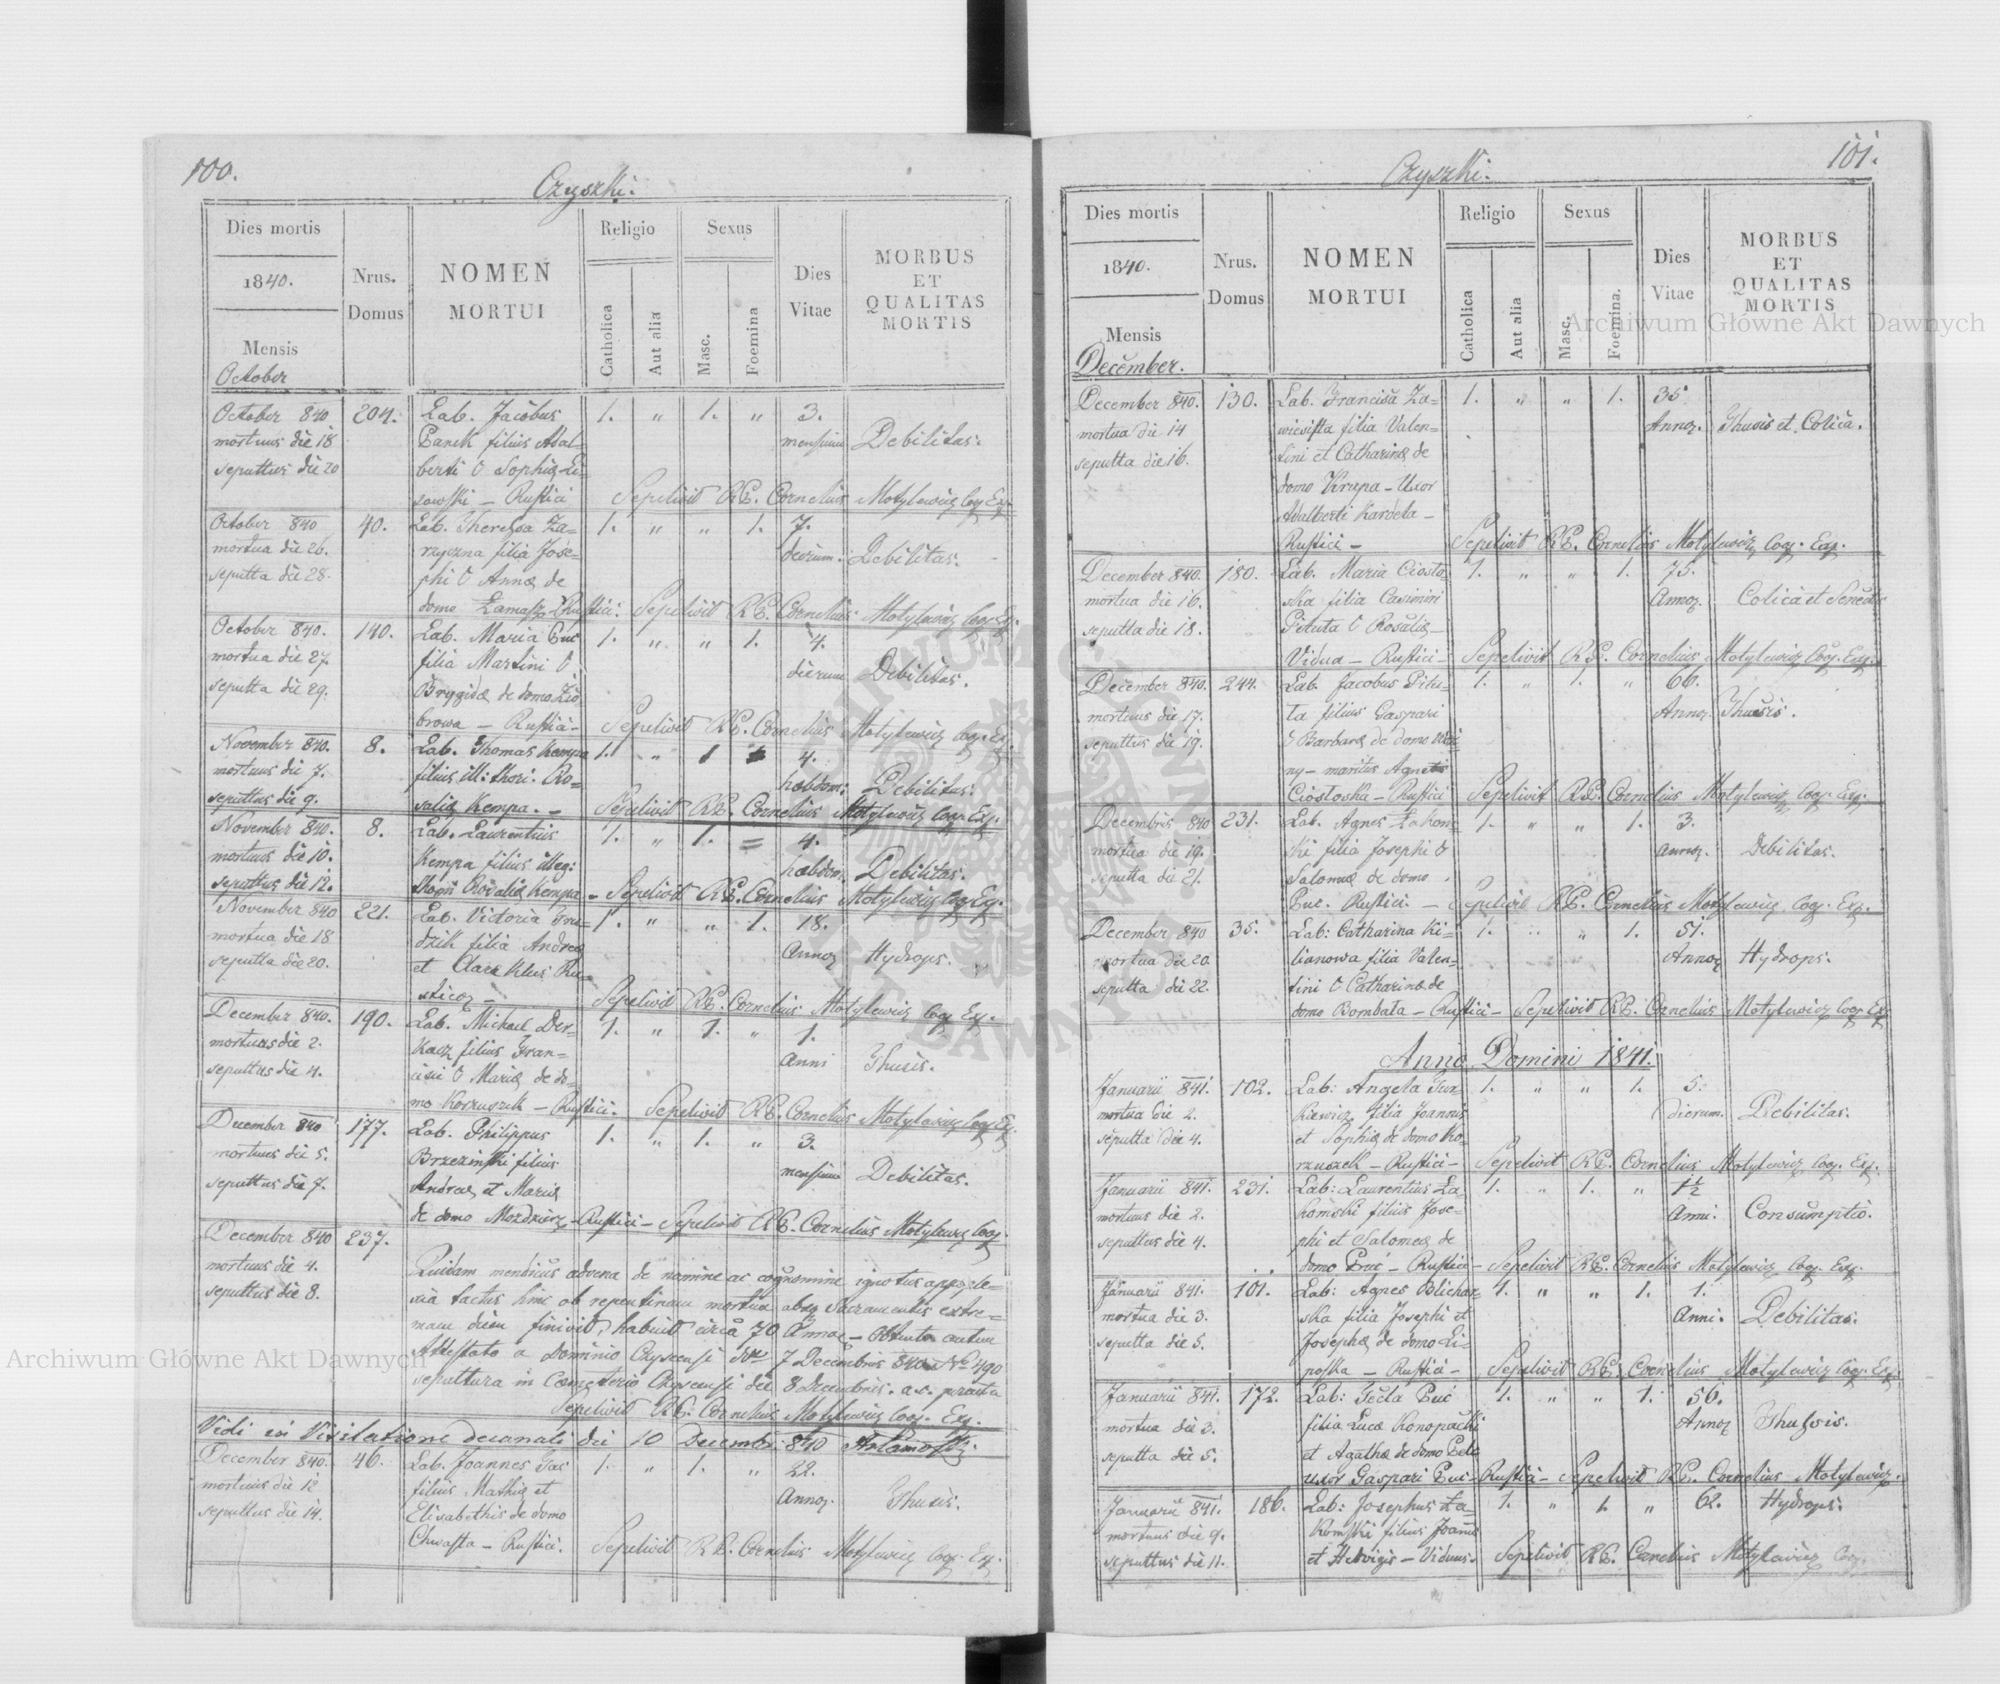 100.
Czyszki.
Dies mortis
1840.
Mensis
October
Nrus.
Domus
NOMEN
MORTUI
Religio
Catholica
Aut alia
Sexus
Masc.
Foemina
Dies
Vitae
MORBUS
ET
QUALITAS
MORTIS
October 840 204. Lab. Jacobus 1. " 1. " 3.
mortuus die 18 Panek filius Adal- mensium Debilitas.
sepultus die 20 berti & Sophiæ Li-
sowski — Rustici Sepelivit RP. Cornelius Motylewicz Coop. Exp.
October 840 40. Lab. Theressa Za- 1. " " 1. 7.
mortua die 26. rzyczna filia Jose- dierum. Debilitas.
sepulta die 28. phi & Annæ de
domo Łamasz — Rustici. Sepelivit RP. Cornelius Motylewicz Coop. Exp.
October 840. 140. Lab. Maria Puc 1. " " 1. 4.
mortua die 27. filia Martini & dierum Debilitas.
sepulta die 29. Brygidæ de domo Zio-
browa — Rustici — Sepelivit RP. Cornelius Motylewicz Coop. Exp.
November 840. 8. Lab. Thomas Kempa 1. " 1 4.
mortuus die 7. filius ill: thori. Ro- hebdom: Debilitas.
sepultus die 9. saliæ Kempa. — Sepelivit RP. Cornelius Motylewicz Coop. Exp.
November 840. 8. Lab. Laurentius 1. " 1. = 4.
mortuus die 10. Kempa filius illeg: hebdom. Debilitas.
sepultus die 12. thori Rosaliæ Kempa — Sepelivit RP. Cornelius Motylewicz Coop. Exp.
November 840 221. Lab. Victoria 1. " " 1. 18.
mortua die 18 dzik filia Andreæ Annor. Hydrops.
sepulta die 20. et Claræ Klus Ru-
sticor — Sepelivit RP. Cornelius Motylewicz Coop. Exp.
December 840. 190. Lab. Michael Der- 1. " 1. " 1.
mortuus die 2. kacz filius Fran- Anni Thusis.
sepultus die 4. cisci & Mariæ de do-
mo Korzuszek — Rustici. Sepelivit RP. Cornelius Motylewicz Coop. Exp.
December 840 177. Lab. Philippus 1. " 1. " 3.
mortuus die 5. Brzezinski filius mensium Debilitas.
sepultus die 7. Andreæ et Mariæ
de domo Mozdzierz — Rustici — Sepelivit RP. Cornelius Motylewicz Coop.
December 840 237.
mortuus die 4. Quidam mendicus advena de nomine ac cognomine ignotus apople-
sepultus die 8. xia tactus hinc ob repentinam mortem absq Sacramentis extre-
mam diem finivit, habuit circa 70 Annor — Obtento autem
Attestato a Dominio Czyscensi 7 Decembris 840 No 490
sepultura in Cæmeterio Czyscensi die 8 Decembris. a.c. peracta
Sepelivit RP. Cornelius Motylewicz Coop. Exp.
Vidi in Visitatione decanali die 10 Decembr: 840
December 840. 46. Lab. Joannes Gac 1. " 1. " 22.
mortuus die 12 filius Mathiæ et Annor. Thusis.
sepultus die 14. Elisabethis de domo
Chwasta — Rustici. Sepelivit RP. Cornelius Motylewicz Coop. Exp.
101.
Czyszki.
Dies mortis
1840.
Mensis
December.
Nrus.
Domus
NOMEN
MORTUI
Religio
Catholica
Aut alia
Sexus
Masc.
Foemina.
Dies
Vitae
MORBUS
ET
QUALITAS
MORTIS
December 840. 130. Lab. Francisca Za- 1. " " 1. 35
mortua die 14 wiewista filia Valen- Annor. Thusis et Colica.
sepulta die 16. tini et Catharinæ de
domo Krupa — Uxor
Adalberti Kardela —
Rustici — Sepelivit RP. Cornelius Motylewicz Coop. Exp.
December 840. 180. Lab. Maria Ciosto- 1. " " 1. 75.
mortua die 16. ska filia Casimiri Annor. Colica et Senectus
sepulta die 18. Pituta & Rosaliæ —
Vidua — Rustici — Sepelivit RP. Cornelius Motylewicz Coop. Exp.
December 840. 244. Lab. Jacobus Pitu- 1. " 1. " 66.
mortuus die 17. ta filius Gaspari Annor. Thusis.
sepultus die 19. & Barbaræ de domo
ny — maritus Agnetis
Ciostoska — Rustici Sepelivit RP. Cornelius Motylewicz Coop. Exp.
Decembris 840 231. Lab. Agnes Łakom- 1. " " 1. 3.
mortua die 19. ski filia Josephi & annor. Debilitas.
sepulta die 21. Salomeæ de domo
Puc. Rustici. — Sepelivit RP. Cornelius Motylewicz Coop. Exp.
December 840 35. Lab: Catharina Ki- 1. " " 1. 51.
mortua die 20 lianowa filia Valen- Annor Hydrops.
sepulta die 22. tini & Catharinæ de
domo Bombata — Rustici — Sepelivit RP. Cornelius Motylewicz Coop. Exp
Anno Domini 1841.
Januarii 841. 102. Lab: Angela Tur- 1. " " 1. 5.
mortua die 2. kiewicz filia Joannis dierum. Debilitas.
sepulta die 4. et Sophiæ de domo Ko-
rzuszek — Rustici — Sepelivit RP. Cornelius Motylewicz Coop. Exp.
Januarii 841. 231. Lab: Laurentius Ła- 1. " 1. " 1½
mortuus die 2. komski filius Jose- Anni. Consumptio.
sepultus die 4. phi et Salomeæ de
domo Puc — Rustici — Sepelivit RP. Cornelius Motylewicz Coop. Exp.
Januarii 841. 101. Lab: Agnes Blichar- 1. " " 1. 1.
mortua die 3. ska filia Josephi et Anni. Debilitas.
sepulta die 5. Josephæ de domo Li-
poska — Rustici — Sepelivit RP. Cornelius Motylewicz Coop. Exp.
Januarii 841. 172. Lab: Tecla Puc 1. " " 1. 56.
mortua die 3. filia Lucæ Konopacki Annor Thusis.
sepulta die 5. et Agathæ de domo
uxor Gaspari Puc — Rustici — Sepelivit RP. Cornelius Motylewicz.
Januarii 841. 186. Lab: Josephus Ła- 1. " 1. " 62. Hydrops.
mortuus die 9. komski filius Joannis
sepultus die 11. et Hedvigis — Viduus — Sepelivit RP. Cornelius Motylewicz Coop.
Archiwum Główne Akt Dawnych
Archiwum Główne Akt Dawnych